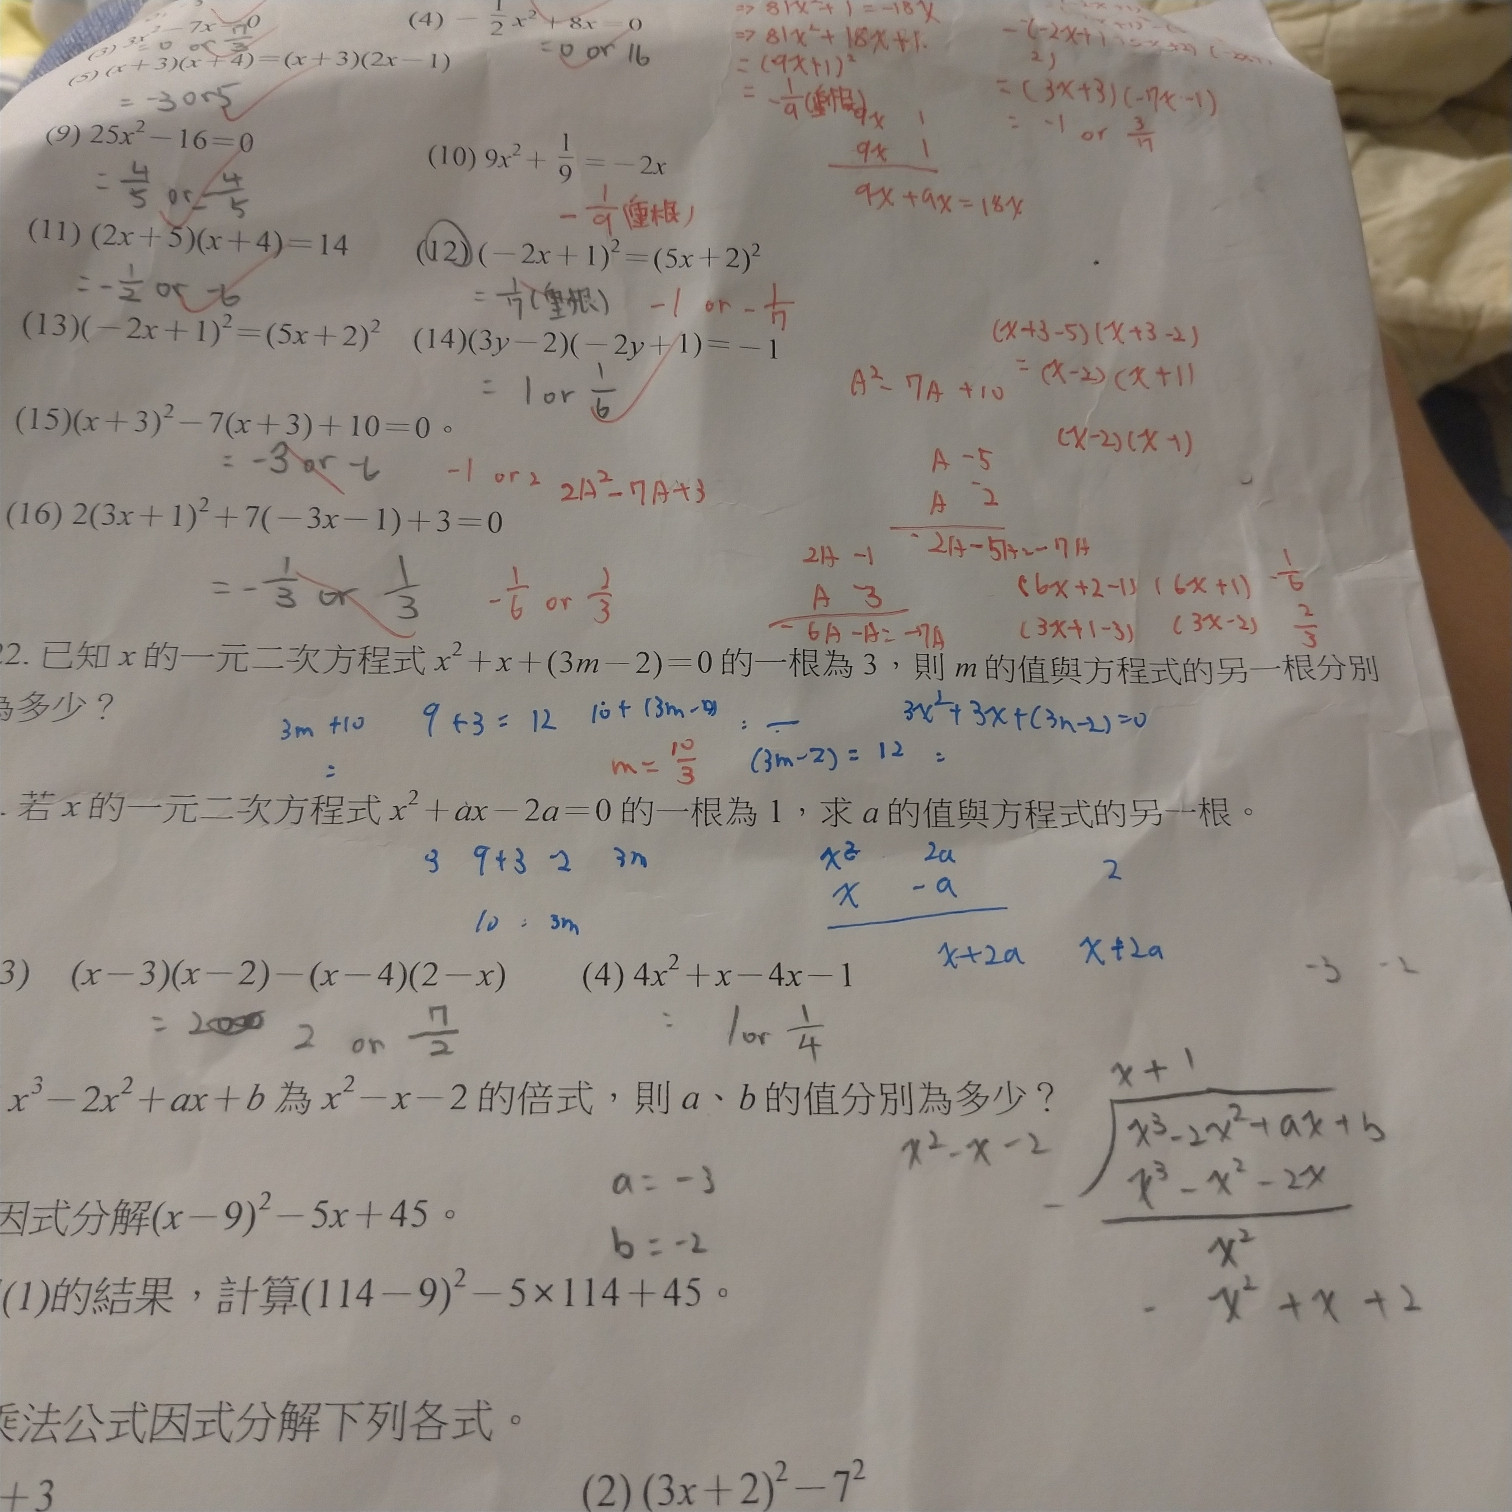 (3) 3x² − 7x = 0
= 0 or 7/3
(4) − 1/2 x² + 8x = 0
= 0 or 16
(5) (x+3)(x+4)=(x+3)(2x−1)
= -3 or 5
⇒ 81x² + 1 = -18x
⇒ 81x² + 18x + 1.
= (9x+1)²
= -1/9 (重根)
9x 1
9x 1
9x + 9x = 18x
= (3x+3)(-7x-1)
= -1 or 3/7
(9) 25x²−16=0
= 4/5 or -4/5
(10) 9x² + 1/9 = −2x
-1/9 (重根)
(11) (2x+5)(x+4)=14
= -1/2 or -6
(12) (−2x+1)²=(5x+2)²
= 1/7 (重根) -1 or -1/7
(13)(−2x+1)²=(5x+2)²
(14)(3y−2)(−2y+1)=−1
= 1 or 1/6
(x+3-5)(x+3-2)
A² - 7A + 10 = (x-2)(x+1)
(x-2)(x+1)
(15)(x+3)²−7(x+3)+10=0。
= -3 or -6 -1 or 2
2A² - 7A + 3
A -5
A -2
-2A-5A=-7A
(16) 2(3x+1)²+7(−3x−1)+3=0
= -1/3 or 1/3 -1/6 or 2/3
2A -1
A -3
-6A -A = -7A
(6x+2-1) (6x+1) -1/6
(3x+1-3) (3x-2) 2/3
22. 已知 x 的一元二次方程式 x²+x+(3m−2)=0 的一根為 3，則 m 的值與方程式的另一根分別
為多少？
3m +10 9+3=12
=
3x²+3x+(3m-2)=0
m = 10/3 (3m-2) = 12 =
. 若 x 的一元二次方程式 x²+ax−2a=0 的一根為 1，求 a 的值與方程式的另一根。
3 9+3 -2 3m
10 = 3m
2a
x -a
x+2a x+2a
2
3) (x−3)(x−2)−(x−4)(2−x)
= 2 2 or 7/2
(4) 4x²+x−4x−1
= 1 or 1/4
-3 -2
x³−2x²+ax+b 為 x²−x−2 的倍式，則 a、b 的值分別為多少？
a = -3
b = -2
x + 1
x² - x - 2
x³ - 2x² + ax + b
- x³ - x² - 2x
x²
- x² + x + 2
因式分解(x−9)²−5x+45。
(1)的結果，計算(114−9)²−5×114+45。
乘法公式因式分解下列各式。
+3
(2) (3x+2)²−7²